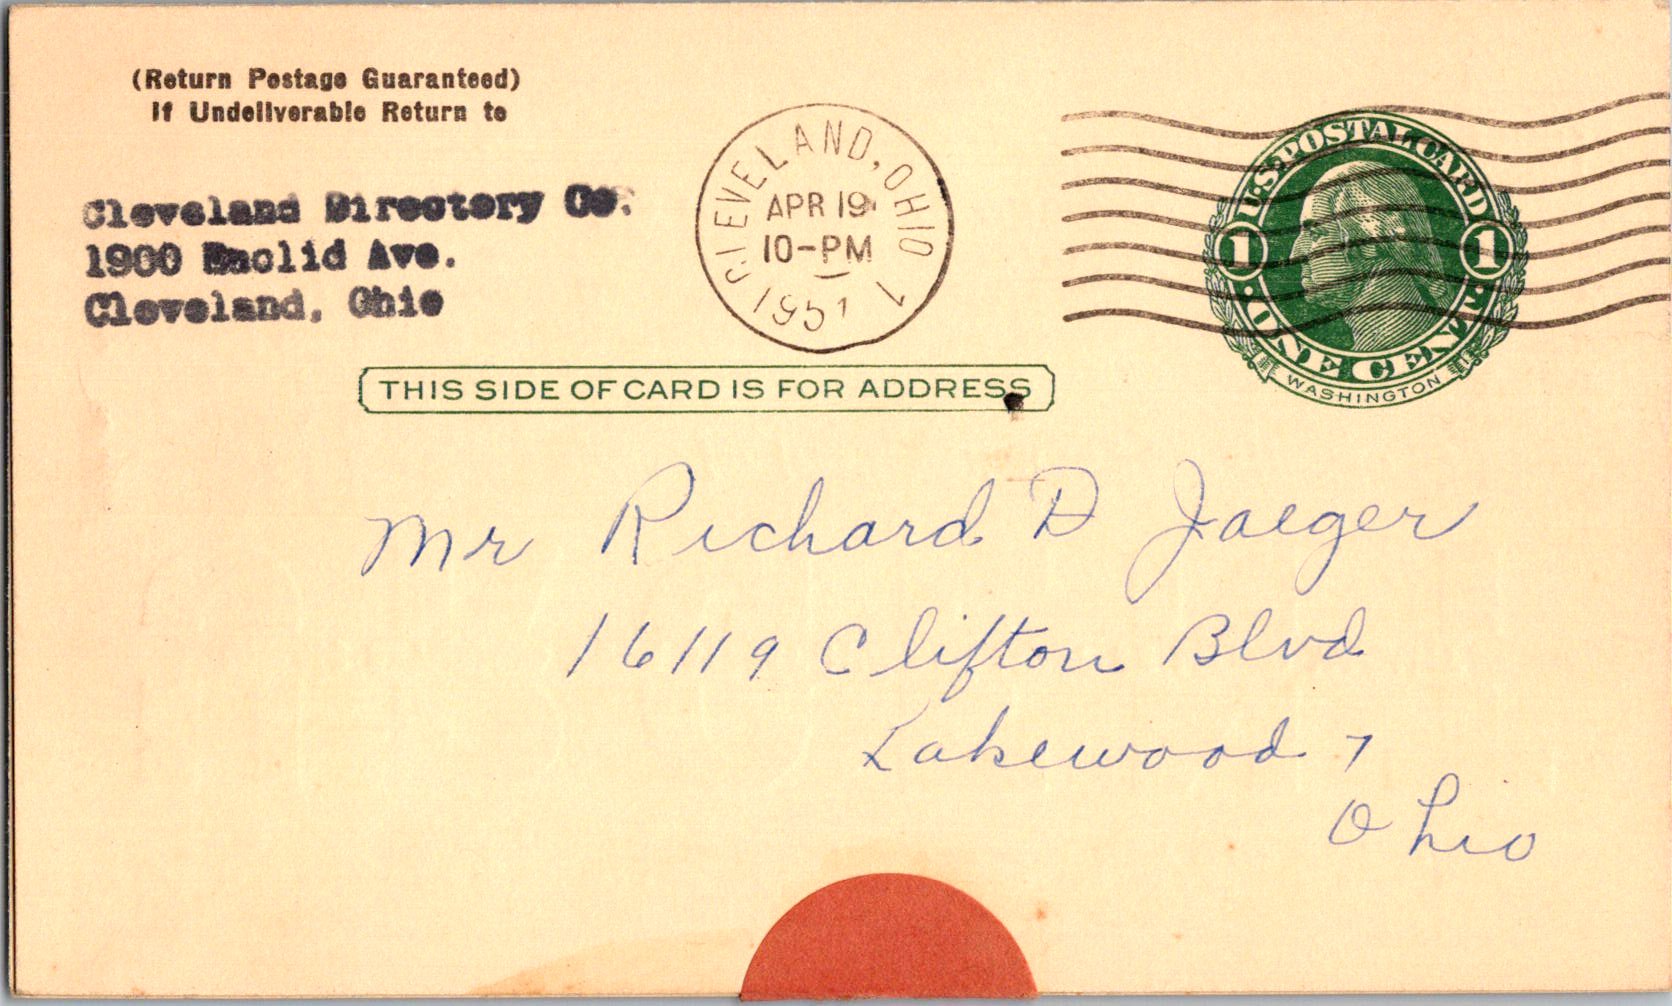 (Return Postage Guaranteed)
If Undeliverable Return to
Cleveland Directory Co.
1900 Euclid Ave.
Cleveland, Ohio
CLEVELAND, OHIO
APR 19
10-PM
1951
1
U.S. POSTAL CARD
1 1
ONE CENT
WASHINGTON
THIS SIDE OF CARD IS FOR ADDRESS
Mr Richard D Jaeger
16119 Clifton Blvd
Lakewood 7
Ohio